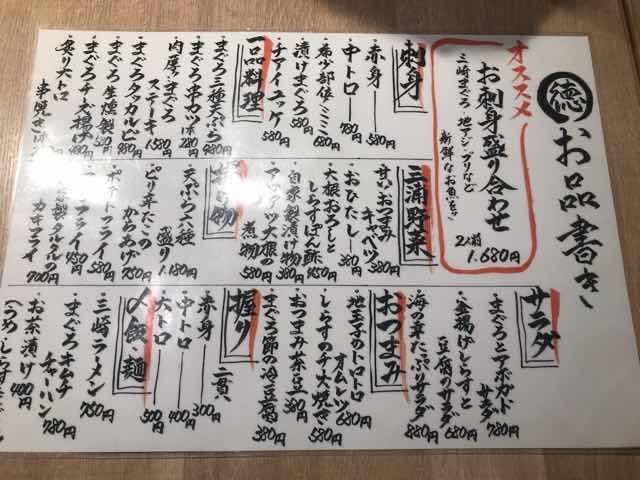 徳
お品書き
オススメ
お刺身盛り合わせ
三崎まぐろ 地アジ、ブリなど
新鮮なお魚を♪
2人前
1.680円
刺身
・赤身 580円
・中トロ 780円
・希少部位ミミ 680円
・漬けまぐろ 580円
・チァイユッケ 580円
一品料理
・まぐろ三種天ぷら 980円
・まぐろ串カツ1本 280円
・肉厚!!まぐろ
ステーキ 1.580円
・まぐろタタカルビ 980円
・まぐろ生燻製
・まぐろチーズ揚げ
・炙り大トロ
串焼き
三浦野菜
・甘いおつまみ
キャベツ 380円
・おひたし 380円
・大根おろしと
しらすぽん酢 450円
・自家製漬け物 380円
・アツアツ大根の
煮物 580円
揚げ物
・天ぷら六種
盛り 1.180円
・ピリ辛たこの
からあげ 750円
・ポテトフライ 580円
フライ 450円
タルタルの
カキフライ 700円
サラダ
・まぐろとアボガド
サラダ 780円
・釜揚げしらすと
豆腐のサラダ 680円
・海の幸たっぷりサラダ 880円
おつまみ
・地玉子のトロトロ
オムレツ 680円
・しらすのチーズ焼き 580円
・おつまみ茶豆 380円
・まぐろ節の冷豆腐 380円
握り 二貫
・赤身 300円
・中トロ 400円
・大トロ 500円
〆飯・麺
・三崎ラーメン 750円
・まぐろキムチ
チャーハン 780円
・お茶漬け 400円